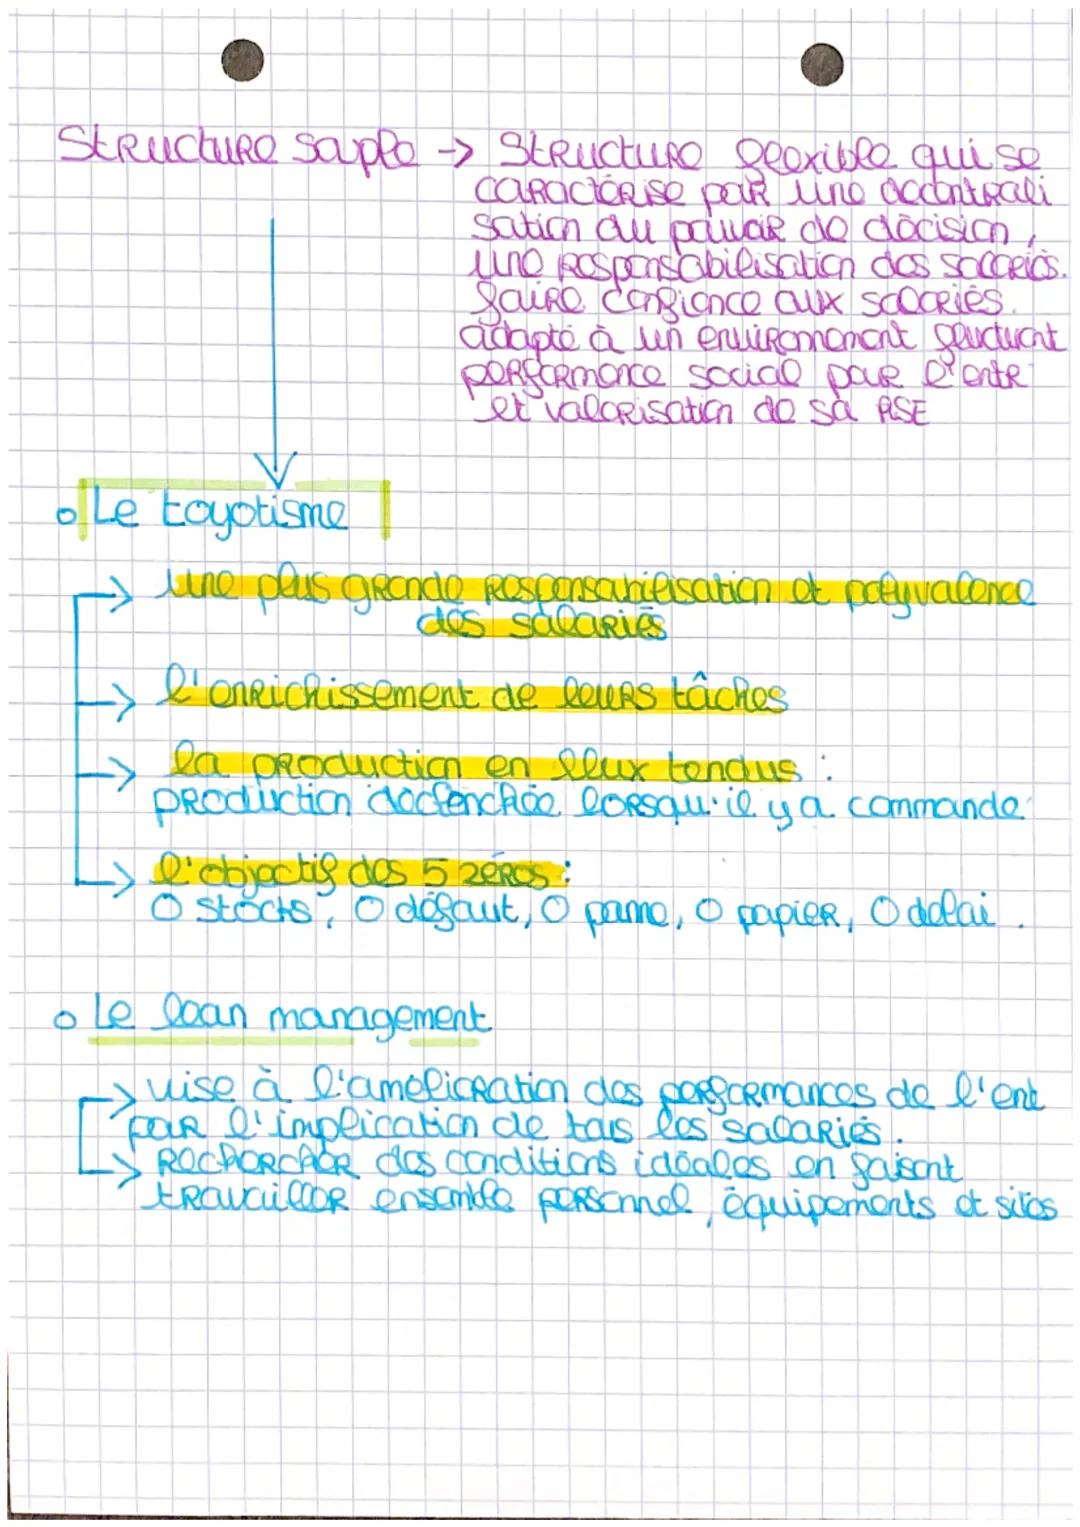 Structure souple → Structure flexible qui se
caractérise par une décentrali
sation du pouvoir de décision,
une responsabilisation des salariés.
faire confiance aux salariés.
adapté à un environnement
performance social pour l'entr
et valorisation de sa RSE
Le toyotisme
→ une plus grande responsabilisation et polyvalence
des salariés
→ l'enrichissement de leurs tâches
→ la production en flux tendus :
production déclenchée lorsqu'il y a commande
→ l'objectif des 5 zéros :
0 stocks, 0 défaut, 0 panne, 0 papier, 0 délai.
Le lean management
→ vise à l'amélioration des performances de l'ent
par l'implication de tous les salariés.
→ Rechercher des conditions idéales en faisant
travailler ensemble personnel, équipements et sites